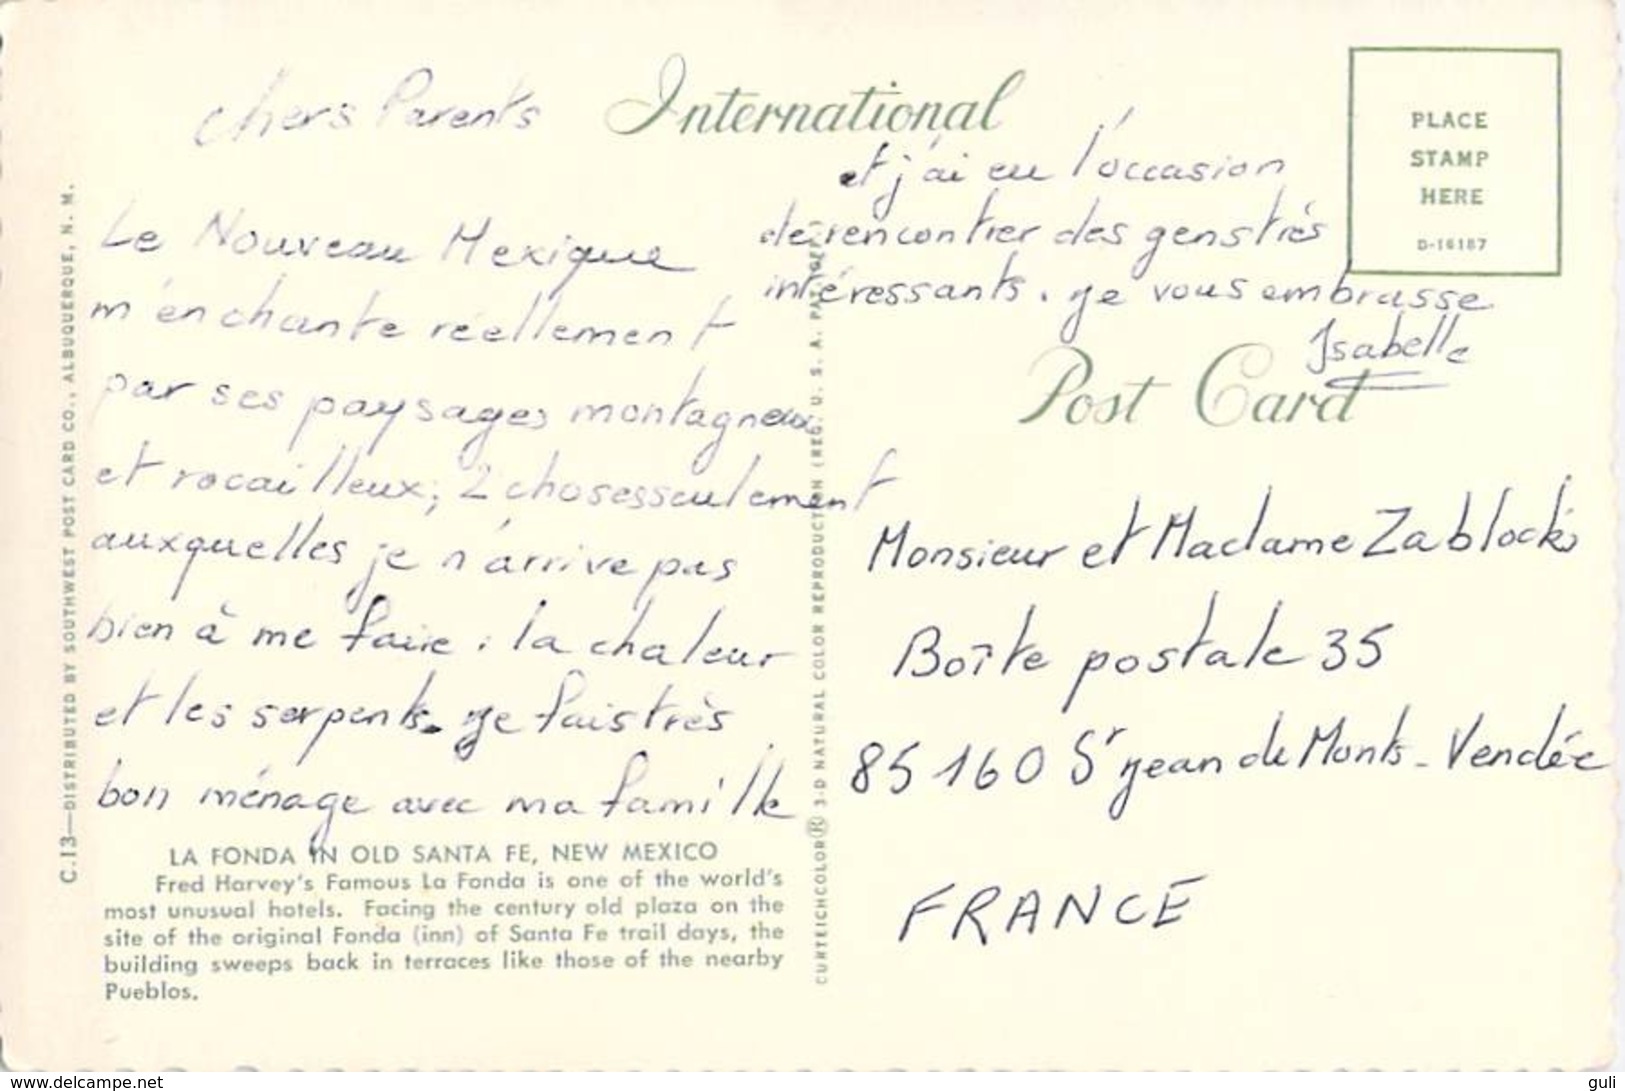 International
Chers Parents
Le Nouveau Mexique
m'enchante réellement
par ses paysages montagneux
et rocailleux; 2 choses seulement
auxquelles je n'arrive pas
bien à me faire : la chaleur
et les serpents. je fais très
bon ménage avec ma famille
et j'ai eu l'occasion
de rencontrer des gens très
intéressants. je vous embrasse
Isabelle
PLACE
STAMP
HERE
D-16187
Post Card
Monsieur et Madame Zablocki
Boîte postale 35
85160 St jean de Monts - Vendée
FRANCE
LA FONDA IN OLD SANTA FE, NEW MEXICO
Fred Harvey's Famous La Fonda is one of the world's
most unusual hotels. Facing the century old plaza on the
site of the original Fonda (inn) of Santa Fe trail days, the
building sweeps back in terraces like those of the nearby
Pueblos.
C.13—DISTRIBUTED BY SOUTHWEST POST CARD CO., ALBUQUERQUE, N. M.
CURTEICHCOLOR® 3-D NATURAL COLOR REPRODUCTION (REG. U. S. A. PAT. OFF.)
www.delcampe.net
guli